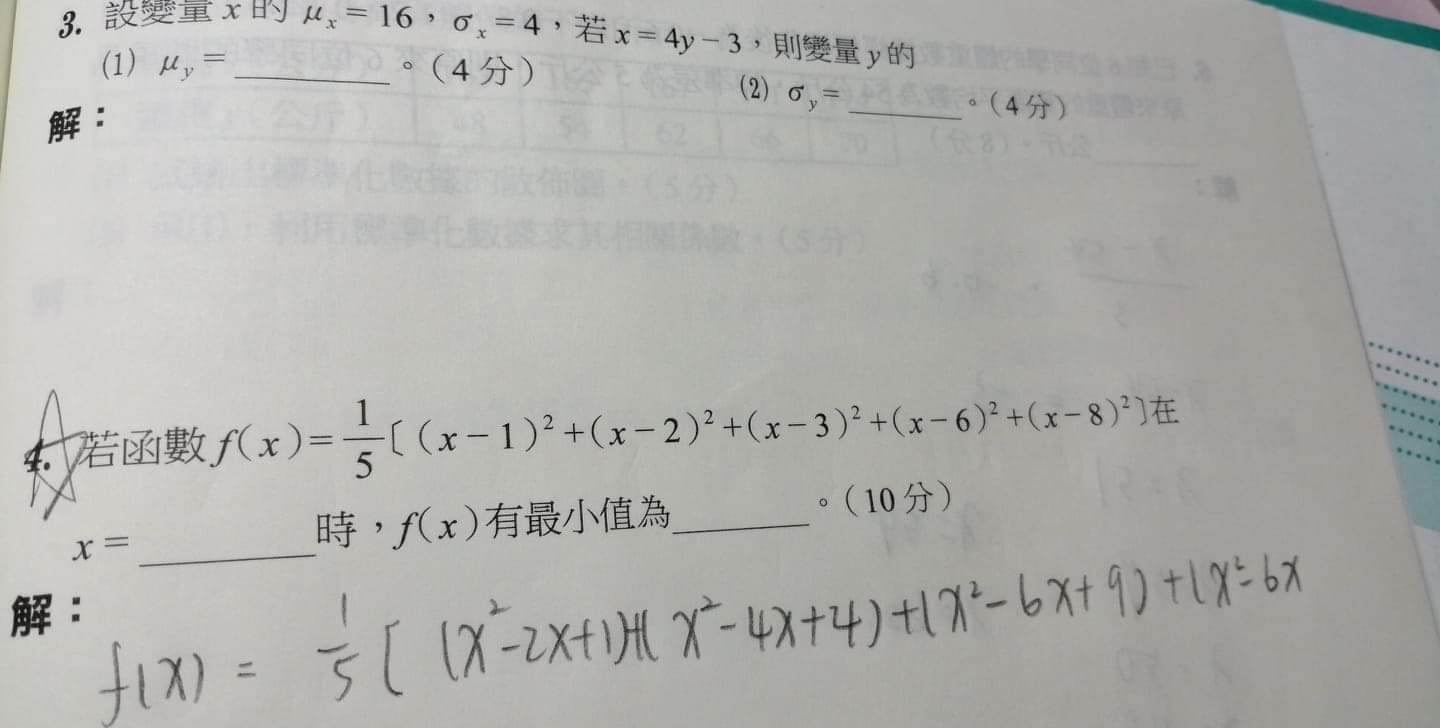 3. 設變量 x 的 μₓ = 16，σₓ = 4，若 x = 4y − 3，則變量 y 的
(1) μᵧ = ________。（4 分） (2) σᵧ = ________。（4 分）
解：
4. 若函數 f(x) = 1/5 [ (x − 1)² + (x − 2)² + (x − 3)² + (x − 6)² + (x − 8)² ] 在
x = ________ 時，f(x) 有最小值為 ________。（10 分）
解：
f(x) = 1/5 [ (x² − 2x + 1) + (x² − 4x + 4) + (x² − 6x + 9) + (x² − 6x